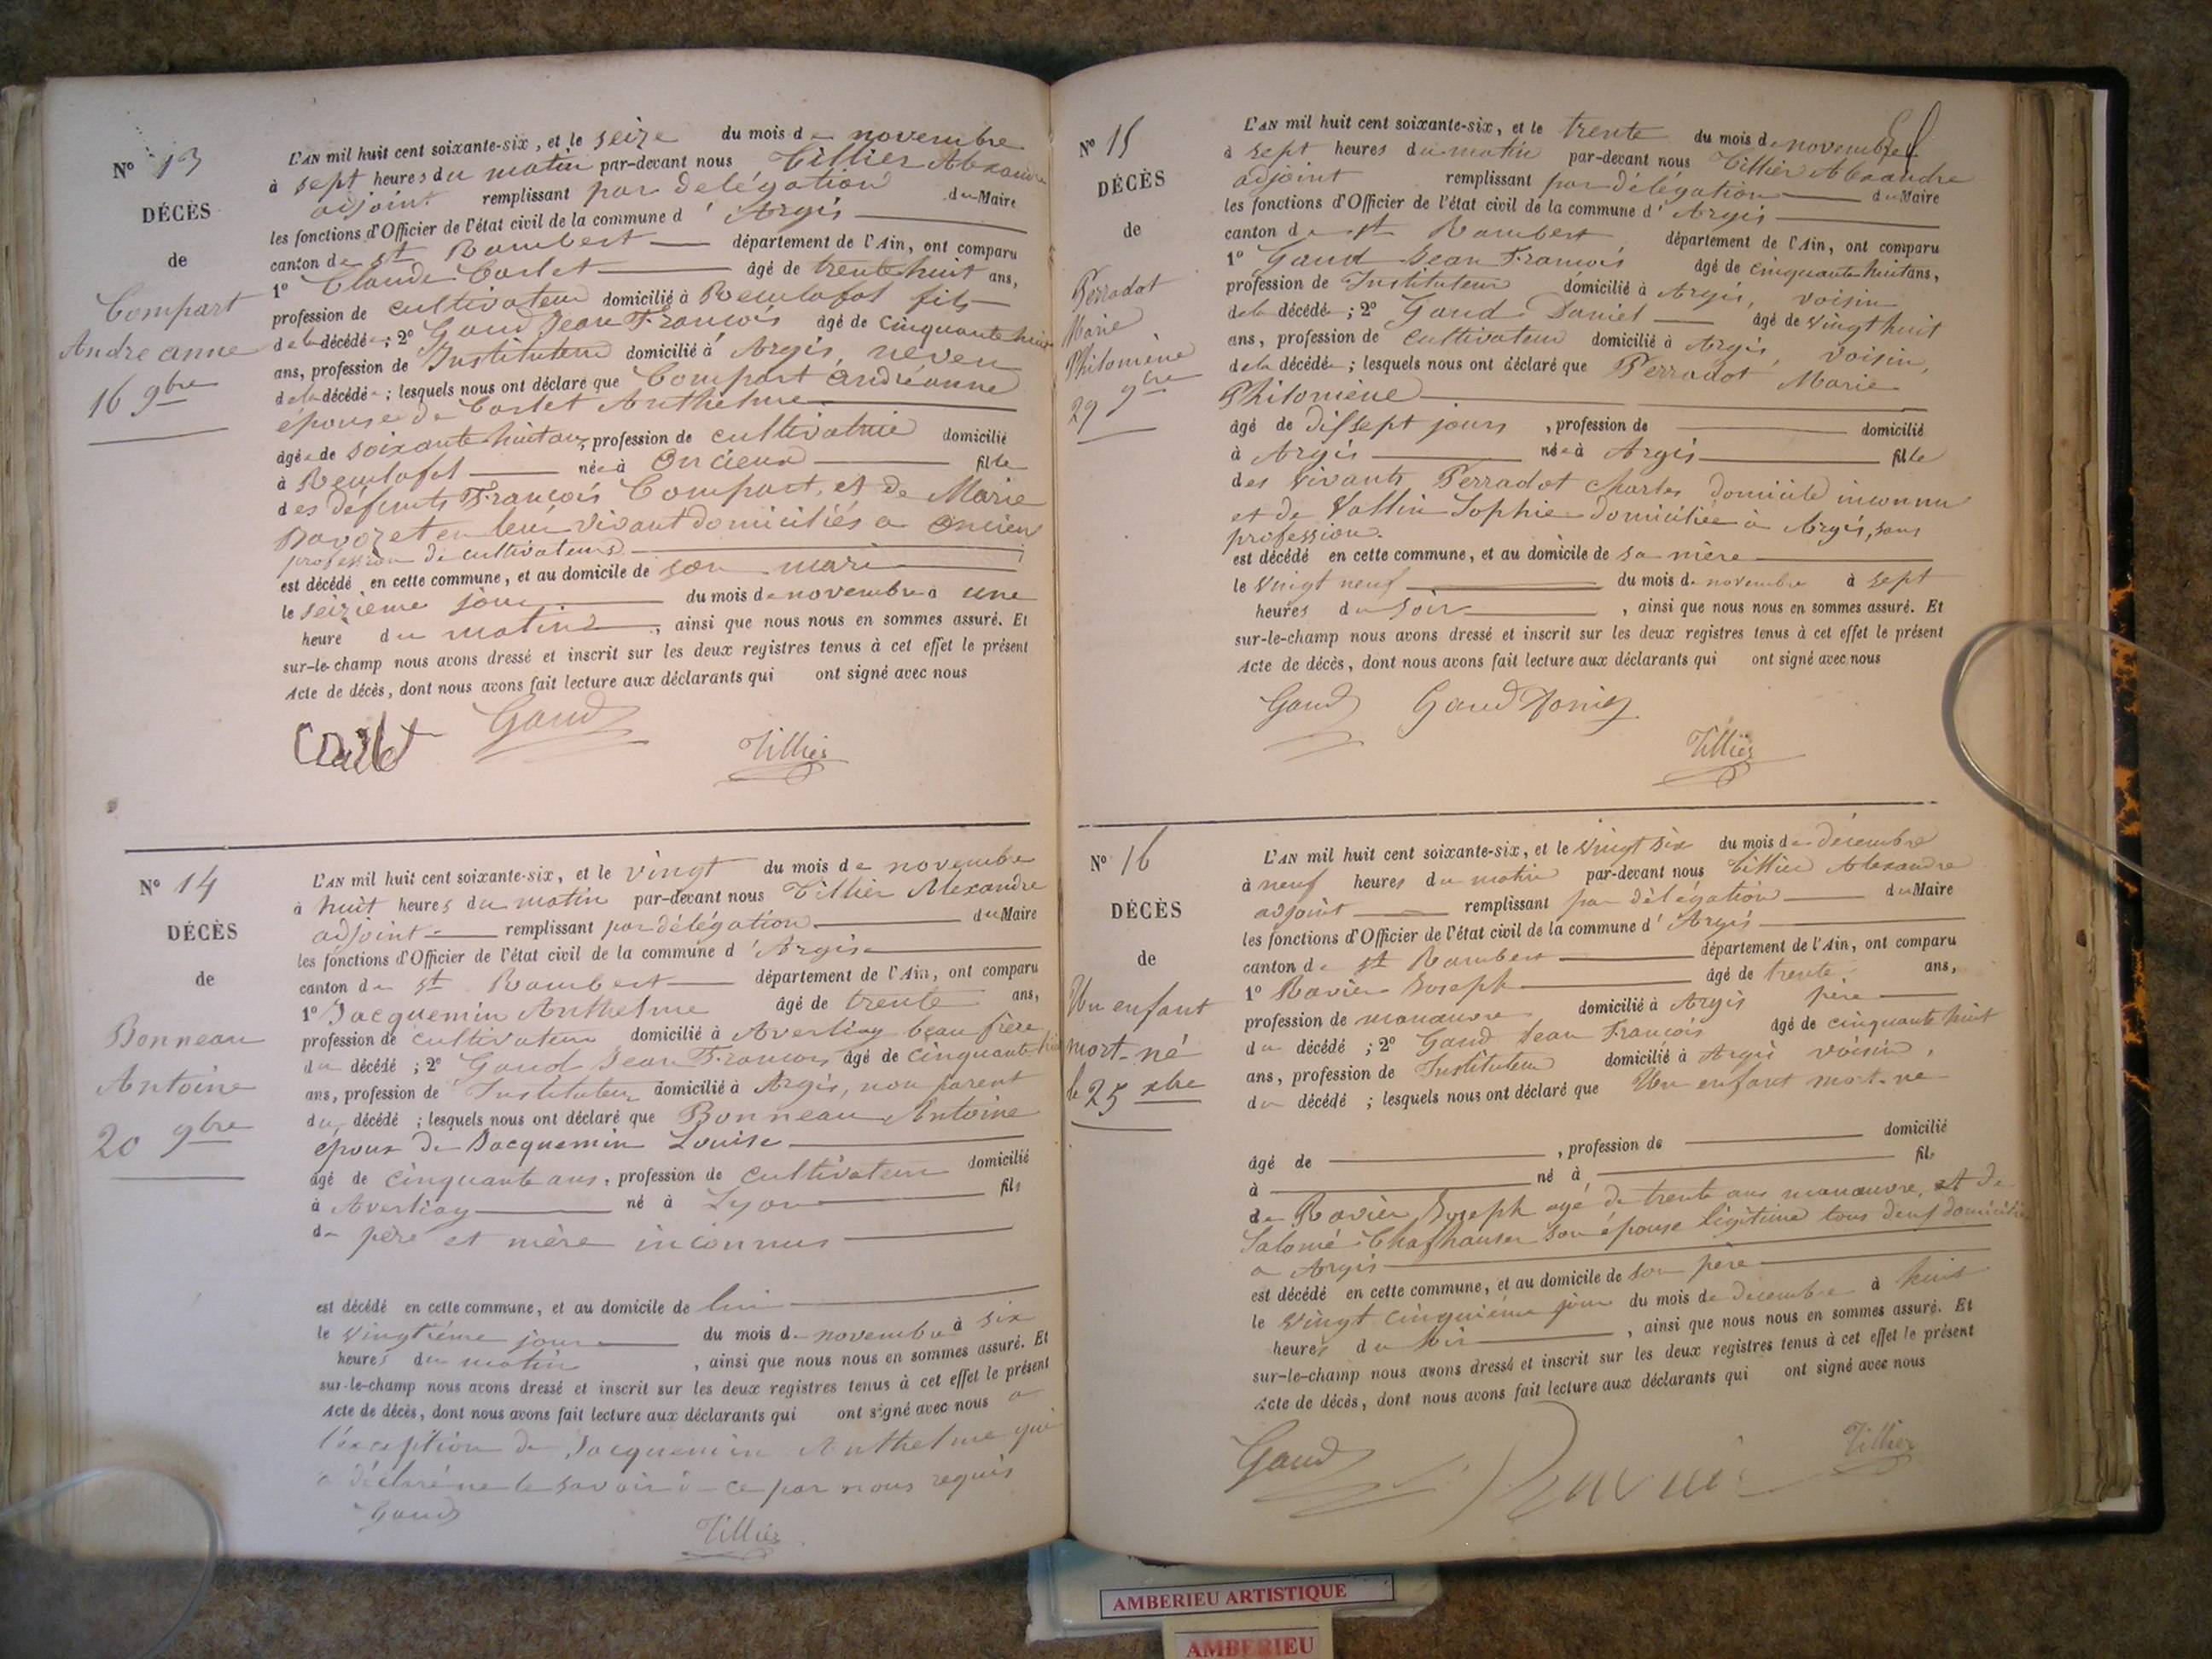 N° 13
DÉCÈS
de
Compart
Andréanne
16 9bre
L'AN mil huit cent soixante-six, et le seize du mois de novembre
à sept heures du matin par-devant nous Tillier Alexandre
adjoint remplissant par délégation du Maire
les fonctions d'Officier de l'état civil de la commune d'Argis
canton de st Rambert département de l'Ain, ont comparu
1° Claude Carlet âgé de trente huit ans,
profession de cultivateur domicilié à Reculafol fils
de la décédée; 2° Gaud Jean François âgé de cinquante huit
ans, profession de Instituteur domicilié à Argis, neveu
de la décédée; lesquels nous ont déclaré que Compart Andréanne
épouse de Carlet Anthelme
âgée de soixante huit ans, profession de cultivatrice domicilié
à Reculafol née à Oncieux fille
des défunts François Compart, et de Marie
Savozet en leur vivant domiciliés à Oncieux
profession de cultivateurs
est décédé en cette commune, et au domicile de son mari
le seizième jour du mois de novembre à une
heure du matin, ainsi que nous nous en sommes assuré. Et
sur-le-champ nous avons dressé et inscrit sur les deux registres tenus à cet effet le présent
Acte de décès, dont nous avons fait lecture aux déclarants qui ont signé avec nous
Gaud
Tillier
N° 14
DÉCÈS
de
Bonneau
Antoine
20 9bre
L'AN mil huit cent soixante-six, et le vingt du mois de novembre
à huit heures du matin par-devant nous Tillier Alexandre
adjoint remplissant par délégation du Maire
les fonctions d'Officier de l'état civil de la commune d'Argis
canton de st Rambert département de l'Ain, ont comparu
1° Jacquemin Anthelme âgé de trente ans,
profession de cultivateur domicilié à Averliay beau frère
du décédé; 2° Gaud Jean François âgé de cinquante huit
ans, profession de Instituteur domicilié à Argis, non parent
du décédé; lesquels nous ont déclaré que Bonneau Antoine
époux de Jacquemin Louise
âgé de cinquante ans, profession de cultivateur domicilié
à Averliay né à Lyon fils
de père et mère inconnus
est décédé en cette commune, et au domicile de lui
le vingtième jour du mois de novembre à six
heures du matin, ainsi que nous nous en sommes assuré. Et
sur-le-champ nous avons dressé et inscrit sur les deux registres tenus à cet effet le présent
Acte de décès, dont nous avons fait lecture aux déclarants qui ont signé avec nous a
l'exception de Jacquemin Anthelme qui
a déclaré ne le savoir de ce par nous requis
Gaud
Tillier
N° 15
DÉCÈS
de
Perradot
Marie
Philomène
29 9bre
L'AN mil huit cent soixante-six, et le trente du mois de novembre
à sept heures du matin par-devant nous Tillier Alexandre
adjoint remplissant par délégation du Maire
les fonctions d'Officier de l'état civil de la commune d'Argis
canton de st Rambert département de l'Ain, ont comparu
1° Gaud Jean François âgé de cinquante huit ans,
profession de Instituteur domicilié à Argis, voisin
de la décédée; 2° Gaud Daniel âgé de vingt huit
ans, profession de cultivateur domicilié à Argis, voisin,
de la décédée; lesquels nous ont déclaré que Perradot Marie
Philomène
âgé de dissept jours, profession de domicilié
à Argis née à Argis fille
des vivants Perradot Charles domicile inconnu
et de Vallin Sophie domiciliée à Argis, sans
profession.
est décédé en cette commune, et au domicile de sa mère
le vingt neuf du mois de novembre à sept
heures du soir, ainsi que nous nous en sommes assuré. Et
sur-le-champ nous avons dressé et inscrit sur les deux registres tenus à cet effet le présent
Acte de décès, dont nous avons fait lecture aux déclarants qui ont signé avec nous
Gaud Gaud Daniel
Tillier
N° 16
DÉCÈS
de
Un enfant
mort-né
le 25 xbre
L'AN mil huit cent soixante-six, et le vingt six du mois de décembre
à neuf heures du matin par-devant nous Tillier Alexandre
adjoint remplissant par délégation du Maire
les fonctions d'Officier de l'état civil de la commune d'Argis
canton de st Rambert département de l'Ain, ont comparu
1° Ravier Joseph âgé de trente ans,
profession de manœuvre domicilié à Argis père
du décédé; 2° Gaud Jean François âgé de cinquante huit
ans, profession de Instituteur domicilié à Argis voisin,
du décédé; lesquels nous ont déclaré que Un enfant mort-né
âgé de, profession de domicilié
à né à fils
de Ravier Joseph agé de trente ans manœuvre, et de
Salomé Chafhauser son épouse légitime tous deux domiciliés
a Argis
est décédé en cette commune, et au domicile de son père
le vingt cinquième jour du mois de decembre à huit
heures du soir, ainsi que nous nous en sommes assuré. Et
sur-le-champ nous avons dressé et inscrit sur les deux registres tenus à cet effet le présent
Acte de décès, dont nous avons fait lecture aux déclarants qui ont signé avec nous
Gaud Ravier Tillier
AMBERIEU ARTISTIQUE
AMBERIEU